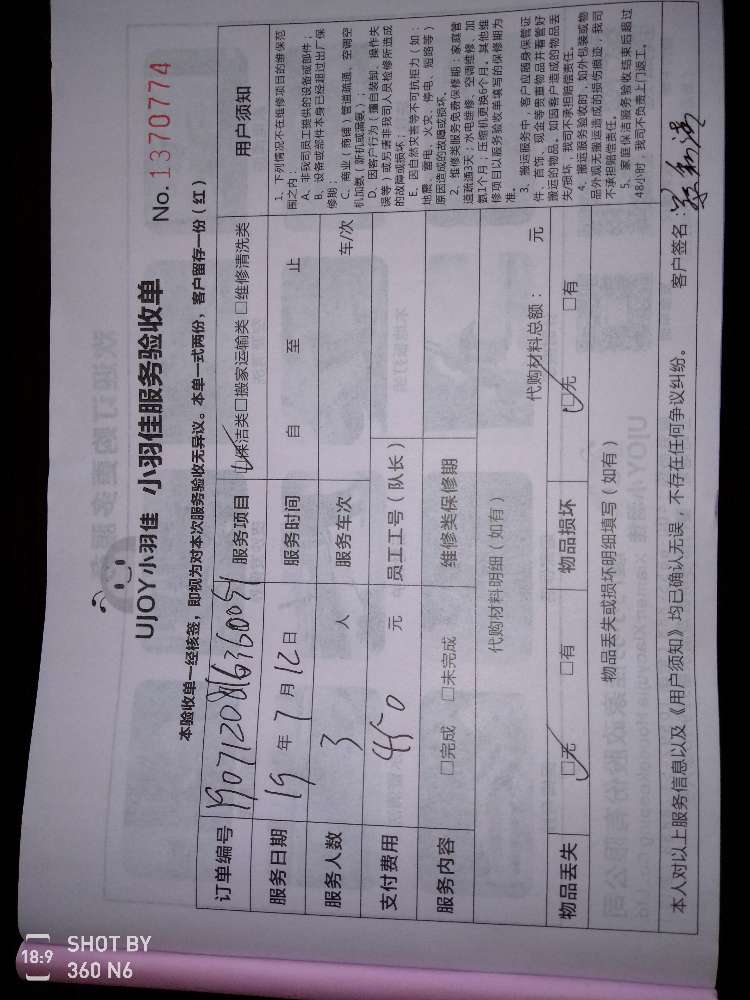 UJOY小羽佳 小羽佳服务验收单
No. 1370774
本验收单一经核签，即视为对本次服务验收无异议。本单一式两份，客户留存一份（红）
订单编号 190712081636009 服务项目 保洁类 □搬家运输类 □维修清洗类
服务日期 19 年 7 月 12 日 服务时间 自 至 止
服务人数 3 人 服务车次 车/次
支付费用 450 元 员工工号（队长）
服务内容 □完成 □未完成 维修类保修期
代购材料明细（如有） 代购材料总额： 元
物品丢失 □无 □有 物品损坏 □无 □有
物品丢失或损坏明细填写（如有）
用户须知
1、下列情况不在维修项目的维保范
围之内：
A、非我司员工提供的设备或部件；
B、设备或部件本身已经超过出厂保
修期；
C、商业（商铺）管道疏通、空调空
机加氨（新机或漏氨）；
D、因客户行为（擅自装卸、操作失
误等）或另请非我司人员检修所造成
的故障或损坏；
E、因自然灾害等不可抗拒力（如：
地震、雷电、火灾、停电、短路等）
原因造成的故障或损坏。
2、维修类服务免费保修期：家庭管
道疏通3天；水电维修、空调维修、加
氨1个月；压缩机更换6个月。其他维
修项目以服务验收单填写的保修期为
准。
3、搬运服务中，客户应随身保管证
件、首饰、现金等贵重物品并看管好
搬运的物品。如因客户造成的物品丢
失/损坏，我司不承担赔偿责任。
4、搬运服务验收时，如外包装或物
品外观无搬运造成的损伤痕迹，我司
不承担赔偿责任。
5、家庭保洁服务验收结束后超过
48小时，我司不负责上门返工。
本人对以上服务信息以及《用户须知》均已确认无误，不存在任何争议纠纷。 客户签名：
18:9 SHOT BY
360 N6